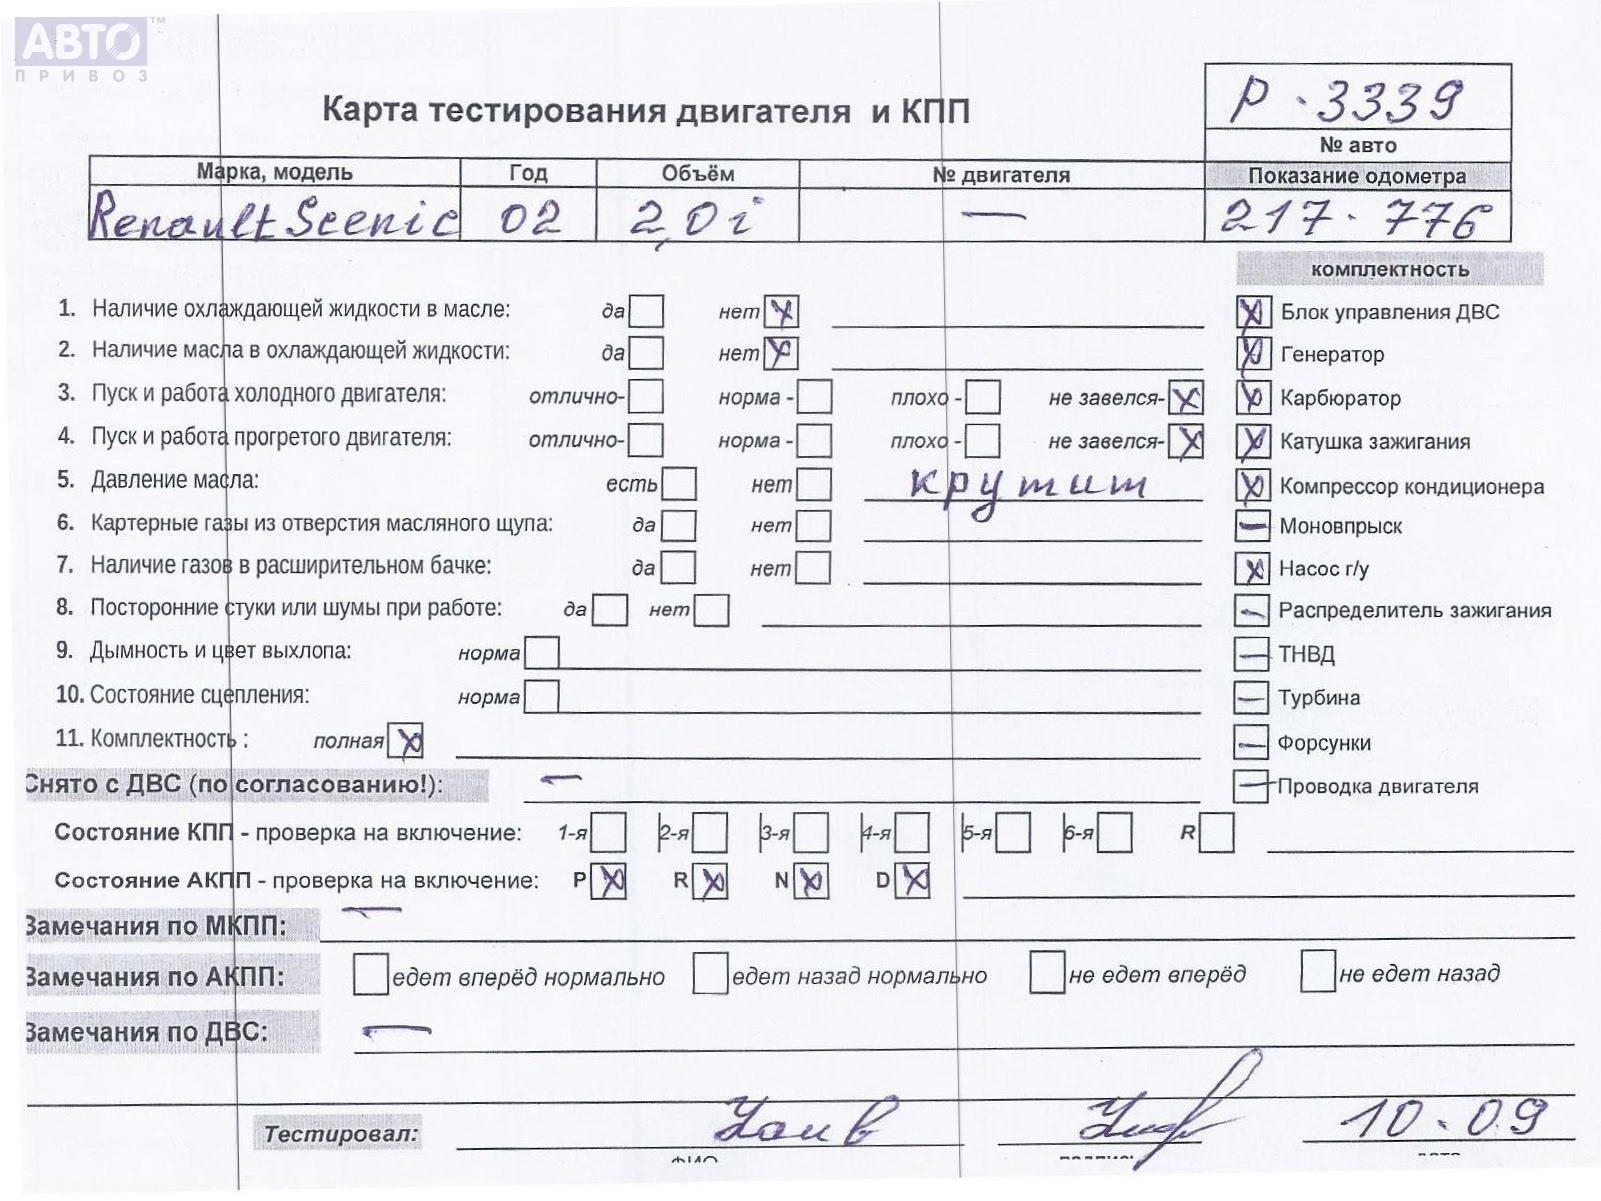 АВТО ™
ПРИВОЗ
Р·3339
Карта тестирования двигателя и КПП
№ авто
Марка, модель Год Объём № двигателя Показание одометра
Renault Scenic 02 2,0i — 217·776
комплектность
1. Наличие охлаждающей жидкости в масле: да нет X Блок управления ДВС
2. Наличие масла в охлаждающей жидкости: да нет X Генератор
3. Пуск и работа холодного двигателя: отлично- норма - плохо - не завелся- X Карбюратор
4. Пуск и работа прогретого двигателя: отлично- норма - плохо - не завелся- X Катушка зажигания
5. Давление масла: есть нет крутит X Компрессор кондиционера
6. Картерные газы из отверстия масляного щупа: да нет — Моновпрыск
7. Наличие газов в расширительном бачке: да нет X Насос г/у
8. Посторонние стуки или шумы при работе: да нет — Распределитель зажигания
9. Дымность и цвет выхлопа: норма — ТНВД
10. Состояние сцепления: норма — Турбина
11. Комплектность : полная X — Форсунки
Снято с ДВС (по согласованию!): — — Проводка двигателя
Состояние КПП - проверка на включение: 1-я 2-я 3-я 4-я 5-я 6-я R
Состояние АКПП - проверка на включение: P X R X N X D X
Замечания по МКПП: —
Замечания по АКПП: едет вперёд нормально едет назад нормально не едет вперёд не едет назад
Замечания по ДВС: —
Тестировал: 10.09
ФИО подпись дата